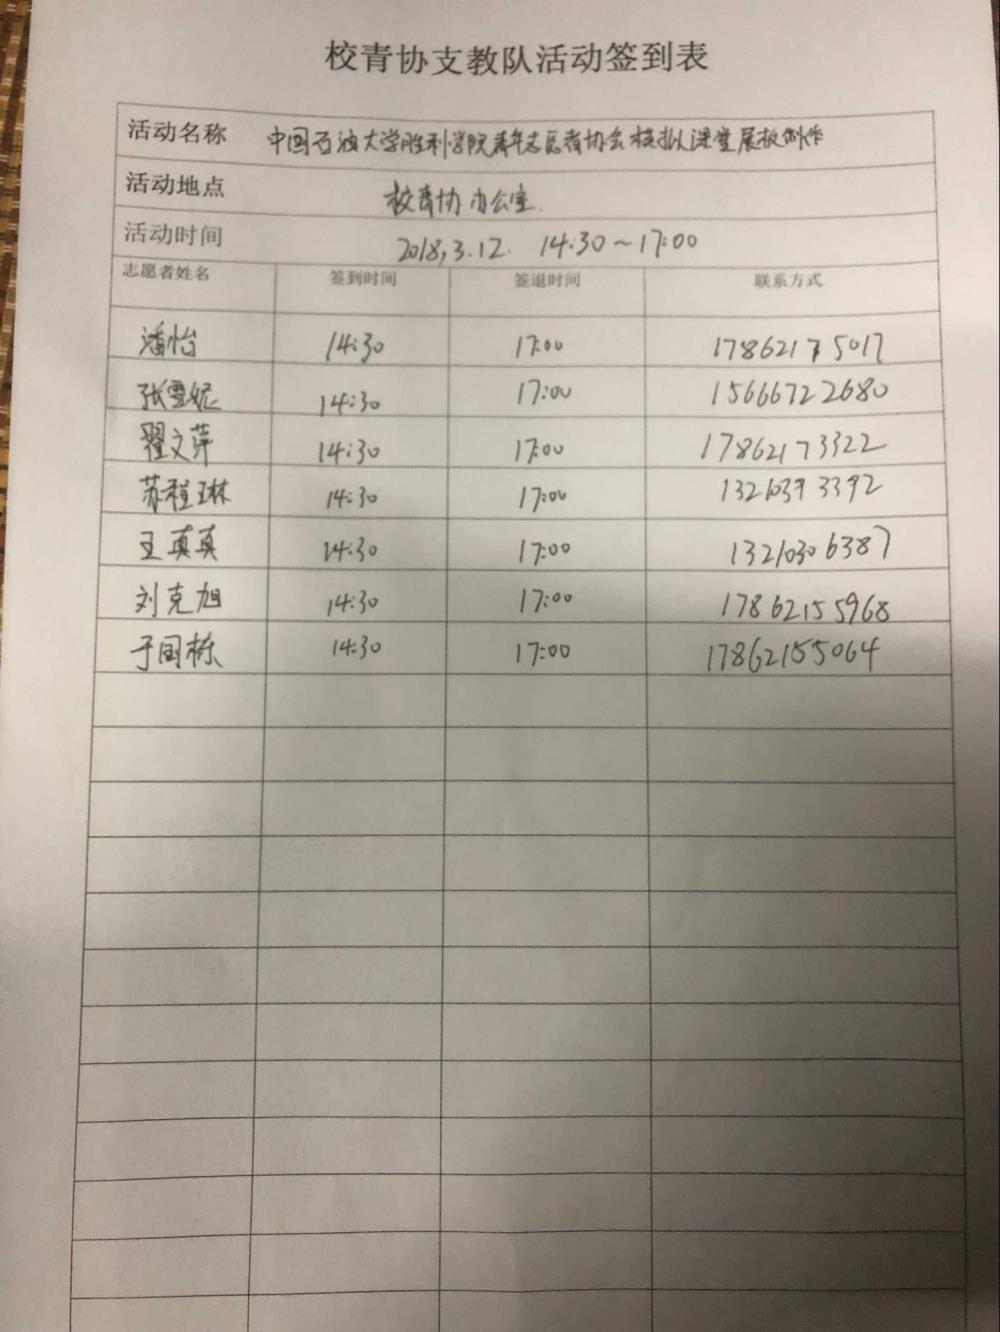 校青协支教队活动签到表
活动名称 中国石油大学胜利学院青年志愿者协会模拟课堂展板制作
活动地点 校青协办公室.
活动时间 2018,3.12. 14:30~17:00
志愿者姓名 签到时间 签退时间 联系方式
潘怡 14:30 17:00 17862175017
张雪妮 14:30 17:00 15666722680
翟文萍 14:30 17:00 17862173322
苏程琳 14:30 17:00 13210393392
王真真 14:30 17:00 13210306387
刘克旭 14:30 17:00 17862155968
于国栋 14:30 17:00 17862155064